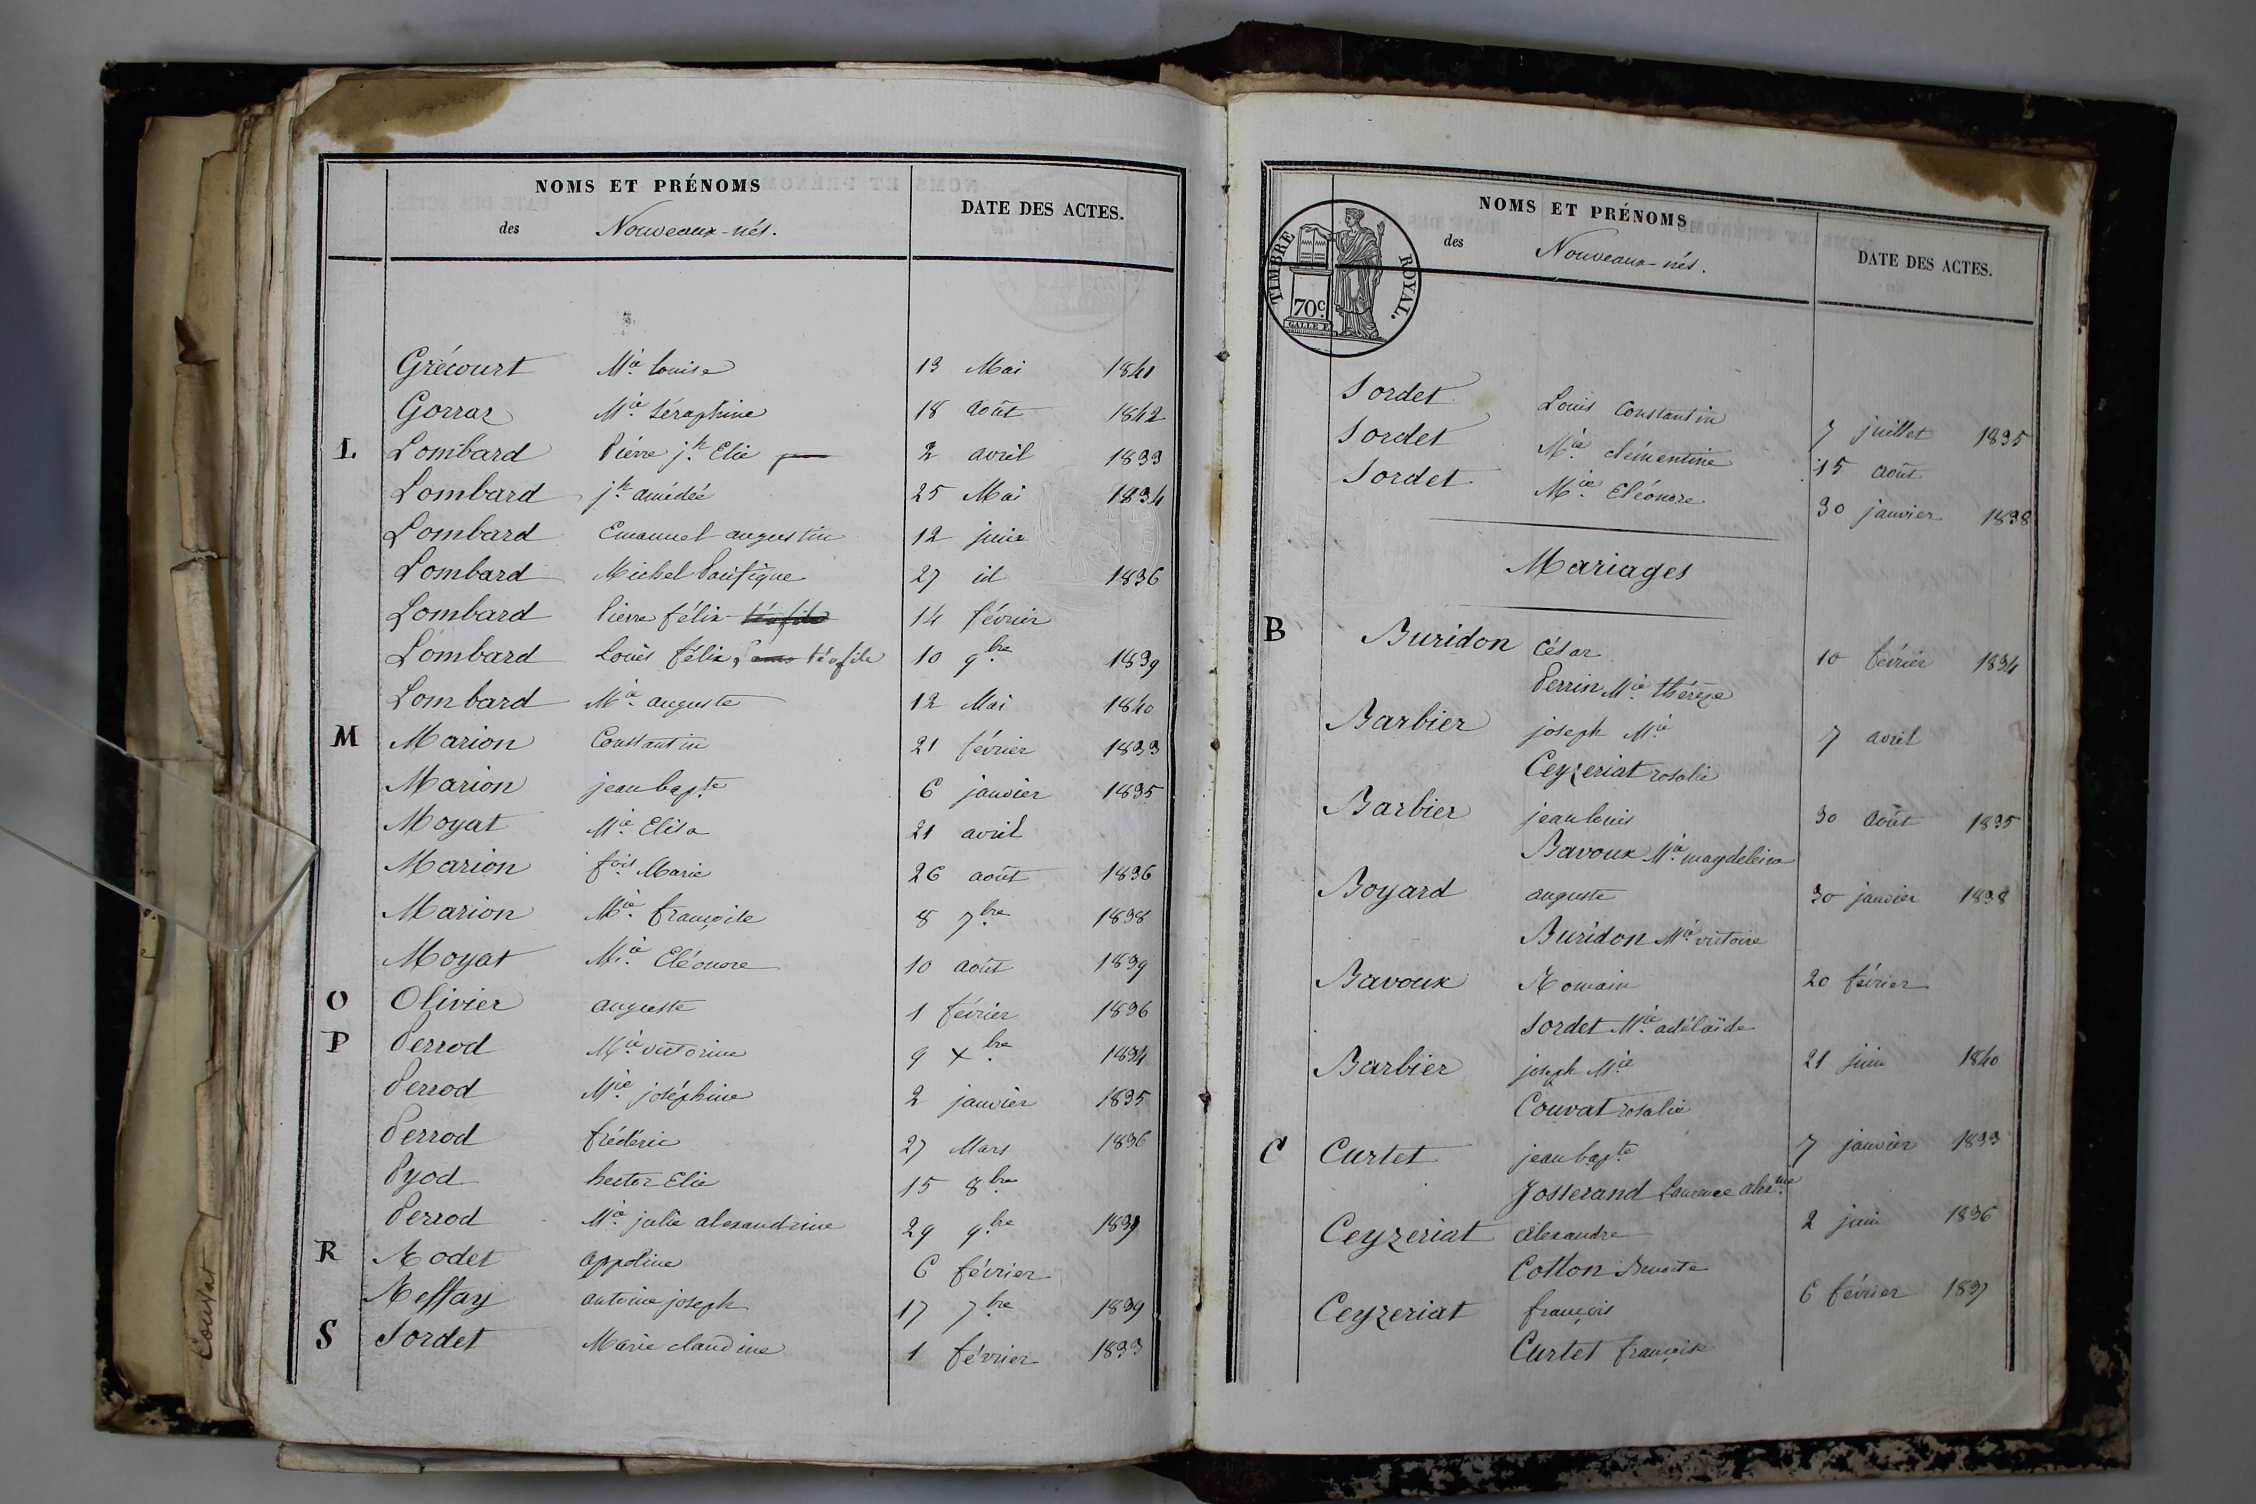 NOMS ET PRÉNOMS
des Nouveaux-nés.
DATE DES ACTES.
Grécourt Mie louise 13 Mai 1841
Gorraz Mie Séraphine 18 août 1842
L Lombard Pierre jh Elie 2 avril 1833
Lombard jh amédée 25 Mai 1834
Lombard Emanuel augustin 12 juin
Lombard Michel Pacifique 27 id 1836
Lombard Pierre félix téofile 14 février
Lombard Louis félix, téofile 10 9bre 1839
Lombard Mie auguste 12 Mai 1840
M Marion Constantin 21 février 1833
Marion jean bapte 6 janvier 1835
Moyat Mie Elisa 21 avril
Marion fois Marie 26 août 1836
Marion Mie françoise 8 7bre 1838
Moyat Mie Eléonore 10 août 1839
O Olivier auguste 1 février 1836
P Perrod Mie victorine 9 xbre 1834
Perrod Mie joséphine 2 janvier 1835
Perrod frédéric 27 Mars 1836
Pyod hector Elie 15 8bre
Perrod Mie julie alexandrine 29 9bre 1839
R Rodet appoline 6 février
Reffay antoine joseph 17 7bre 1839
S Sordet Marie claudine 1 février 1833
Couvat
NOMS ET PRÉNOMS
des Nouveaux-nés.
DATE DES ACTES.
TIMBRE ROYAL.
70c.
GALLE F.
Sordet Louis Constantin 7 juillet 1835
Sordet Mie clémentine 15 août
Sordet Mie Eléonore 30 janvier 1838
Mariages
B Buridon César 10 février 1834
Perrin Mie thérèze
Barbier joseph Mie 7 avril
Ceyzeriat rosalie
Barbier jean louis 30 août 1835
Bavoux Mie magdeleine
Boyard auguste 30 janvier 1838
Buridon Mie victoire
Bavoux Romain 20 février
Sordet Mie adélaïde
Barbier joseph Mie 21 juin 1840
Couvat rosalie
C Curtet jean bapte 7 janvier 1833
Josserand Laurence alexne
Ceyzeriat alexandre 2 juin 1836
Cotton Benoite
Ceyzeriat françois 6 février 1837
Curtet françoise